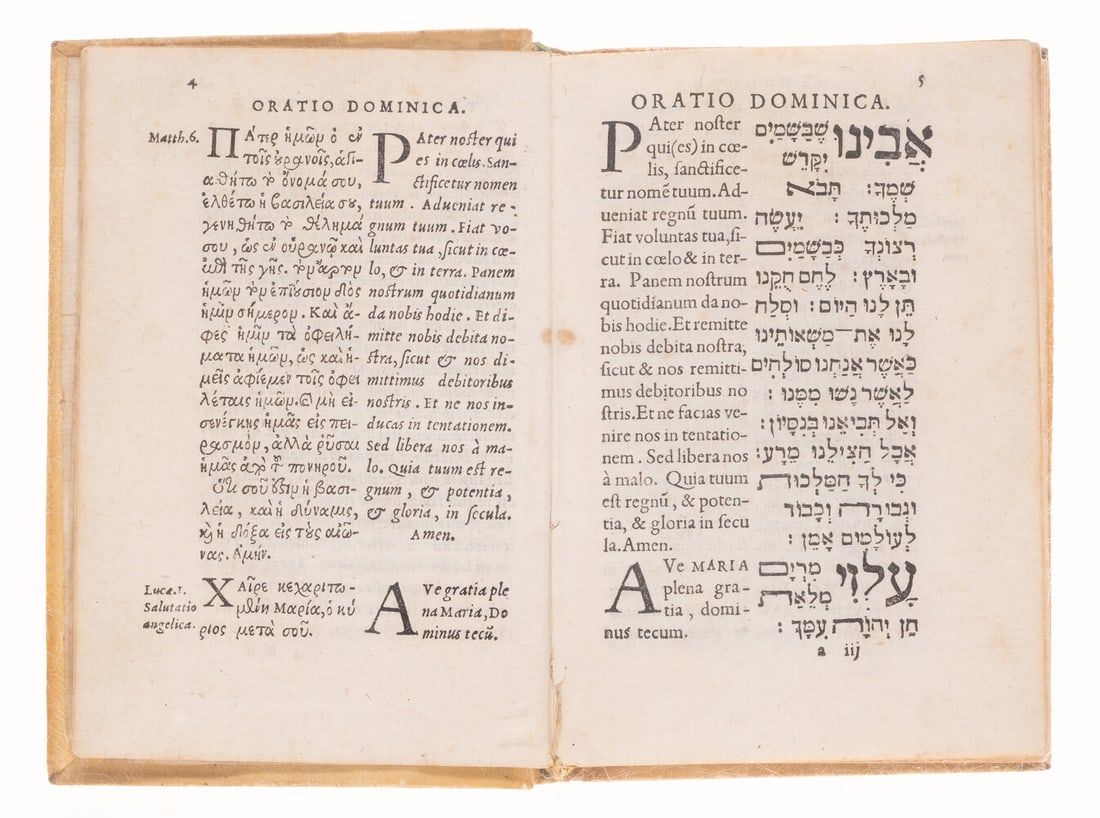 4
ORATIO DOMINICA.
Matth.6.
ΠΑτερ ἡμῶν ὁ ἐν
τοῖς οὐρανοῖς, ἁγι-
αθήτω τὸ ὄνομά σου,
ἐλθέτω ἡ βασιλεία σου,
γενηθήτω τὸ θέλημά
σου, ὡς ἐν οὐρανῷ καὶ
ἐπὶ τῆς γῆς. τὸν ἄρτον
ἡμῶν τὸν ἐπιούσιον δὸς
ἡμῖν σήμερον. Καὶ ἄ-
φες ἡμῖν τὰ ὀφειλή-
ματα ἡμῶν, ὡς καὶ ἡ-
μεῖς ἀφίεμεν τοῖς ὀφει
λέταις ἡμῶν. Καὶ μὴ εἰ-
σενέγκῃς ἡμᾶς εἰς πει-
ρασμὸν, ἀλλὰ ῥῦσαι
ἡμᾶς ἀπὸ τοῦ πονηροῦ.
Ὅτι σοῦ ἐστιν ἡ βασι-
λεία, καὶ ἡ δύναμις,
καὶ ἡ δόξα εἰς τοὺς αἰῶ-
νας. Ἀμήν.
Lucæ.1.
Salutatio
angelica.
ΧΑῖρε κεχαριτω-
μένη Μαρία, ὁ κύ
ριος μετὰ σοῦ.
PAter noster qui
es in cœlis. San-
ctificetur nomen
tuum. Adueniat re-
gnum tuum. Fiat vo-
luntas tua, sicut in cœ-
lo, & in terra. Panem
nostrum quotidianum
da nobis hodie. Et di-
mitte nobis debita no-
stra, sicut & nos di-
mittimus debitoribus
nostris. Et ne nos in-
ducas in tentationem.
Sed libera nos à ma-
lo. Quia tuum est re-
gnum, & potentia,
& gloria, in secula.
Amen.
AVe gratia ple
na Maria, Do
minus tecū.
5
ORATIO DOMINICA.
PAter noster
qui(es) in cœ-
lis, sanctifice-
tur nomē tuum. Ad-
ueniat regnū tuum.
Fiat voluntas tua, si-
cut in cœlo & in ter-
ra. Panem nostrum
quotidianum da no-
bis hodie. Et remitte
nobis debita nostra,
sicut & nos remitti-
mus debitoribus no
stris. Et ne facias ve-
nire nos in tentatio-
nem. Sed libera nos
à malo. Quia tuum
est regnū, & poten-
tia, & gloria in secu
la. Amen.
AVe MARIA
plena gra-
tia, domi-
nus tecum.
אֲבִינוּ שֶׁבַּשָּׁמַיִם
יִקָּדֵשׁ
שְׁמֶךָ: תָּבֹא
מַלְכוּתֶךָ: יֵעָשֶׂה
רְצוֹנְךָ כְּבַשָּׁמַיִם
וּבָאָרֶץ: לֶחֶם חֻקֵּנוּ
תֵּן לָנוּ הַיּוֹם: וּסְלַח
לָנוּ אֶת מַשְּׁאוֹתֵינוּ
כַּאֲשֶׁר אֲנַחְנוּ סוֹלְחִים
לַאֲשֶׁר נָשׁוּ מִמֶּנּוּ:
וְאַל תְּבִיאֵנוּ בְּנִסָּיוֹן:
אֲבָל הַצִּילֵנוּ מֵרָע:
כִּי לְךָ הַמַּלְכוּת
וּגְבוּרָה וְכָבוֹד
לְעוֹלָמִים אָמֵן:
עָלְזִי מִרְיָם
מְלֵאַת
חֵן יְהוָֹה עִמָּךְ:
a iij